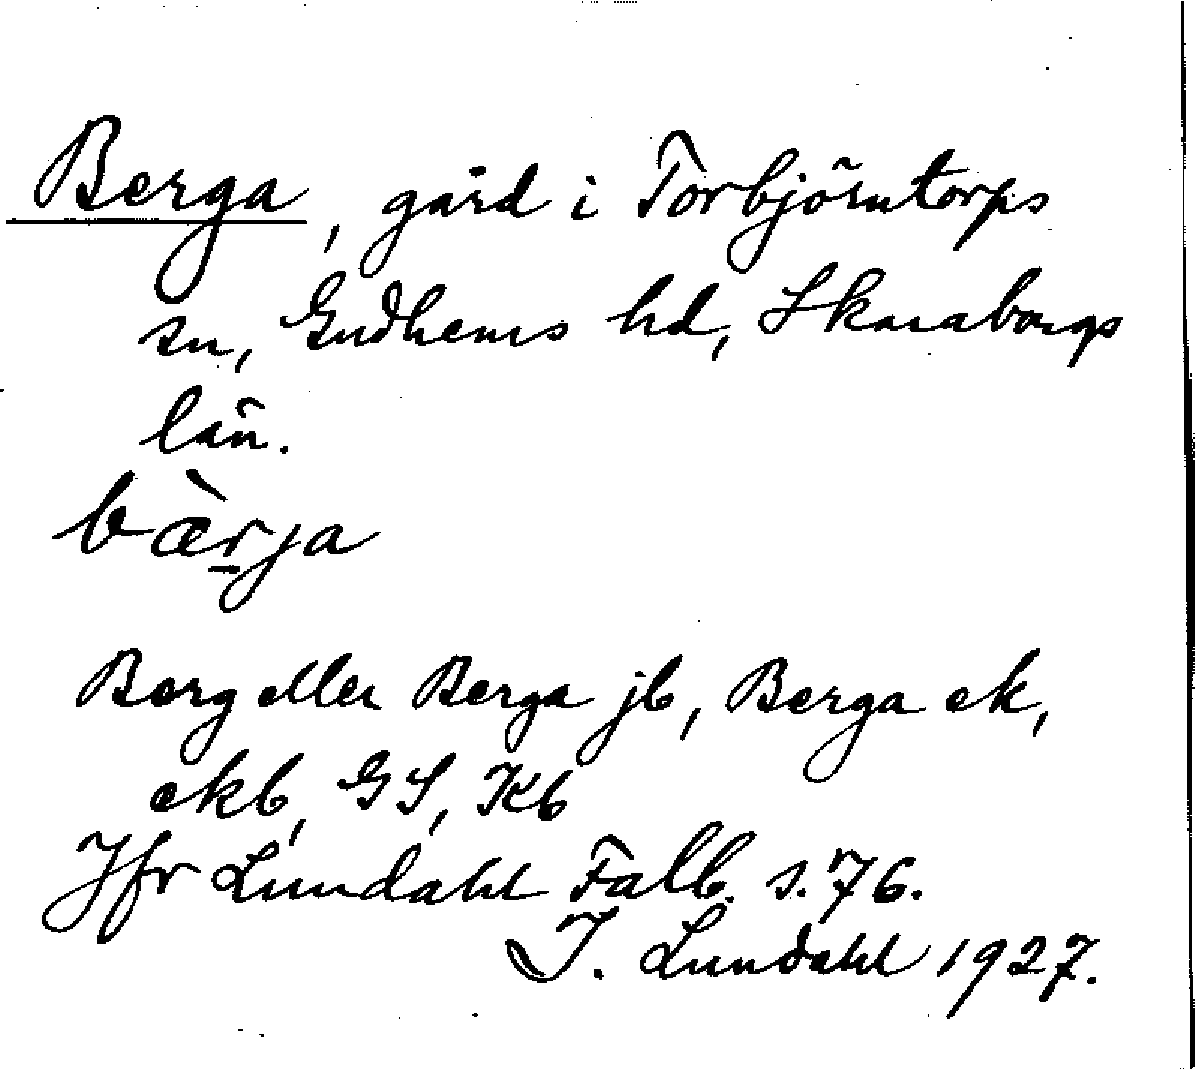 Berga, gård i Torbjörntorps
sn, Gudhems hd, Skaraborgs
län.
bæ̀r̲ja
Berg eller Berga jb, Berga ek,
ekb, GS, Kb
Jfr Lundahl Falb. s. 76.
I. Lundahl 1927.